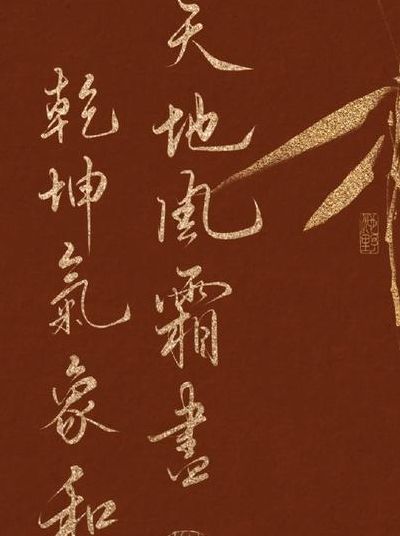 天地風霜盡
乾坤氣象和